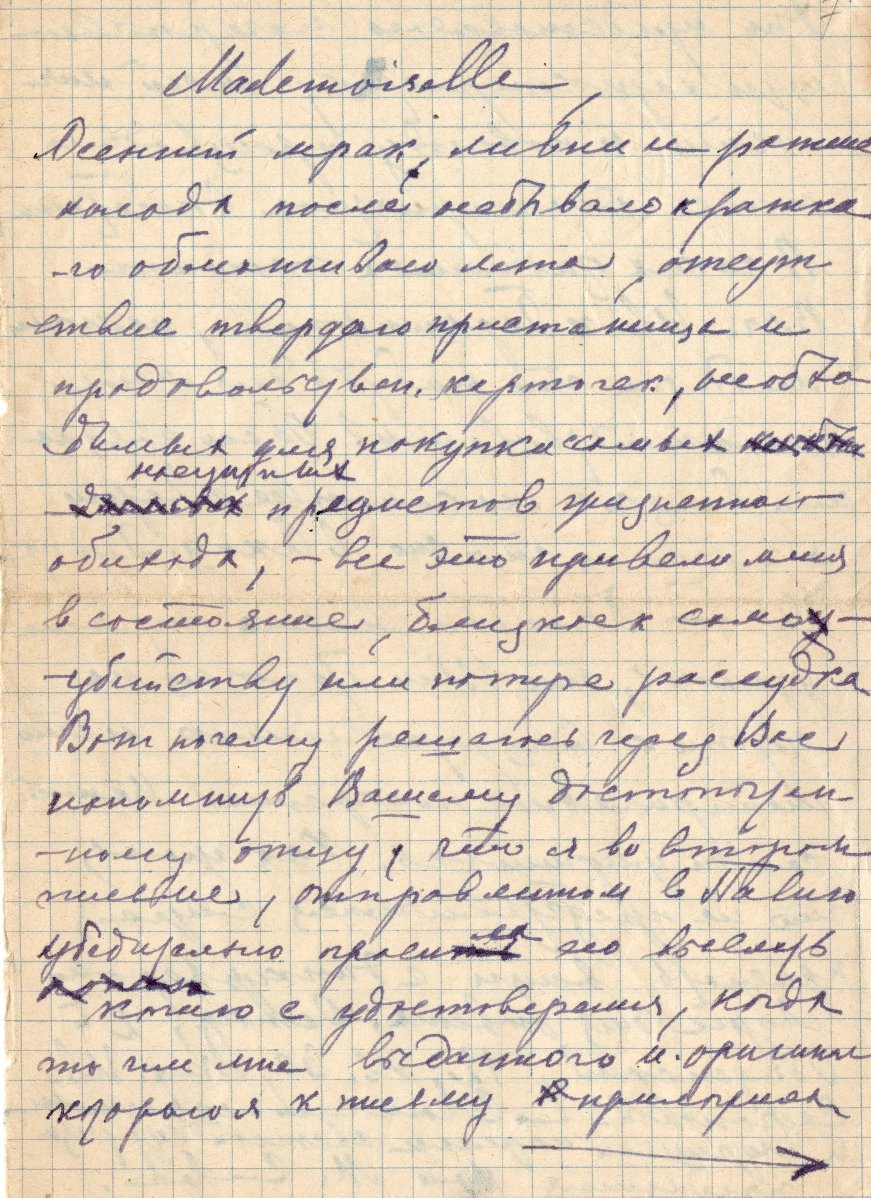 Mademoiselle,
Осенний мрак, ливни и ранние
холода после небывало кратка
-го обманчиваго лета, отсут
ствие твердаго пристанища и
продовольствен. карточек, необхо
димых для покупки самых
насущных
предметов жизненнаго
обихода, – все это привело меня
в состояние, близкое к само
-убийству или потере рассудка
Вот почему решаюсь через Вас
напомнить Вашему достопочтен
-ному отцу, что я во втором
письме, отправленном в Павию
убедительно просила его выслать
копию с удостоверения, когда
то им мне выданного и оригинал
котораго я к письму приложила